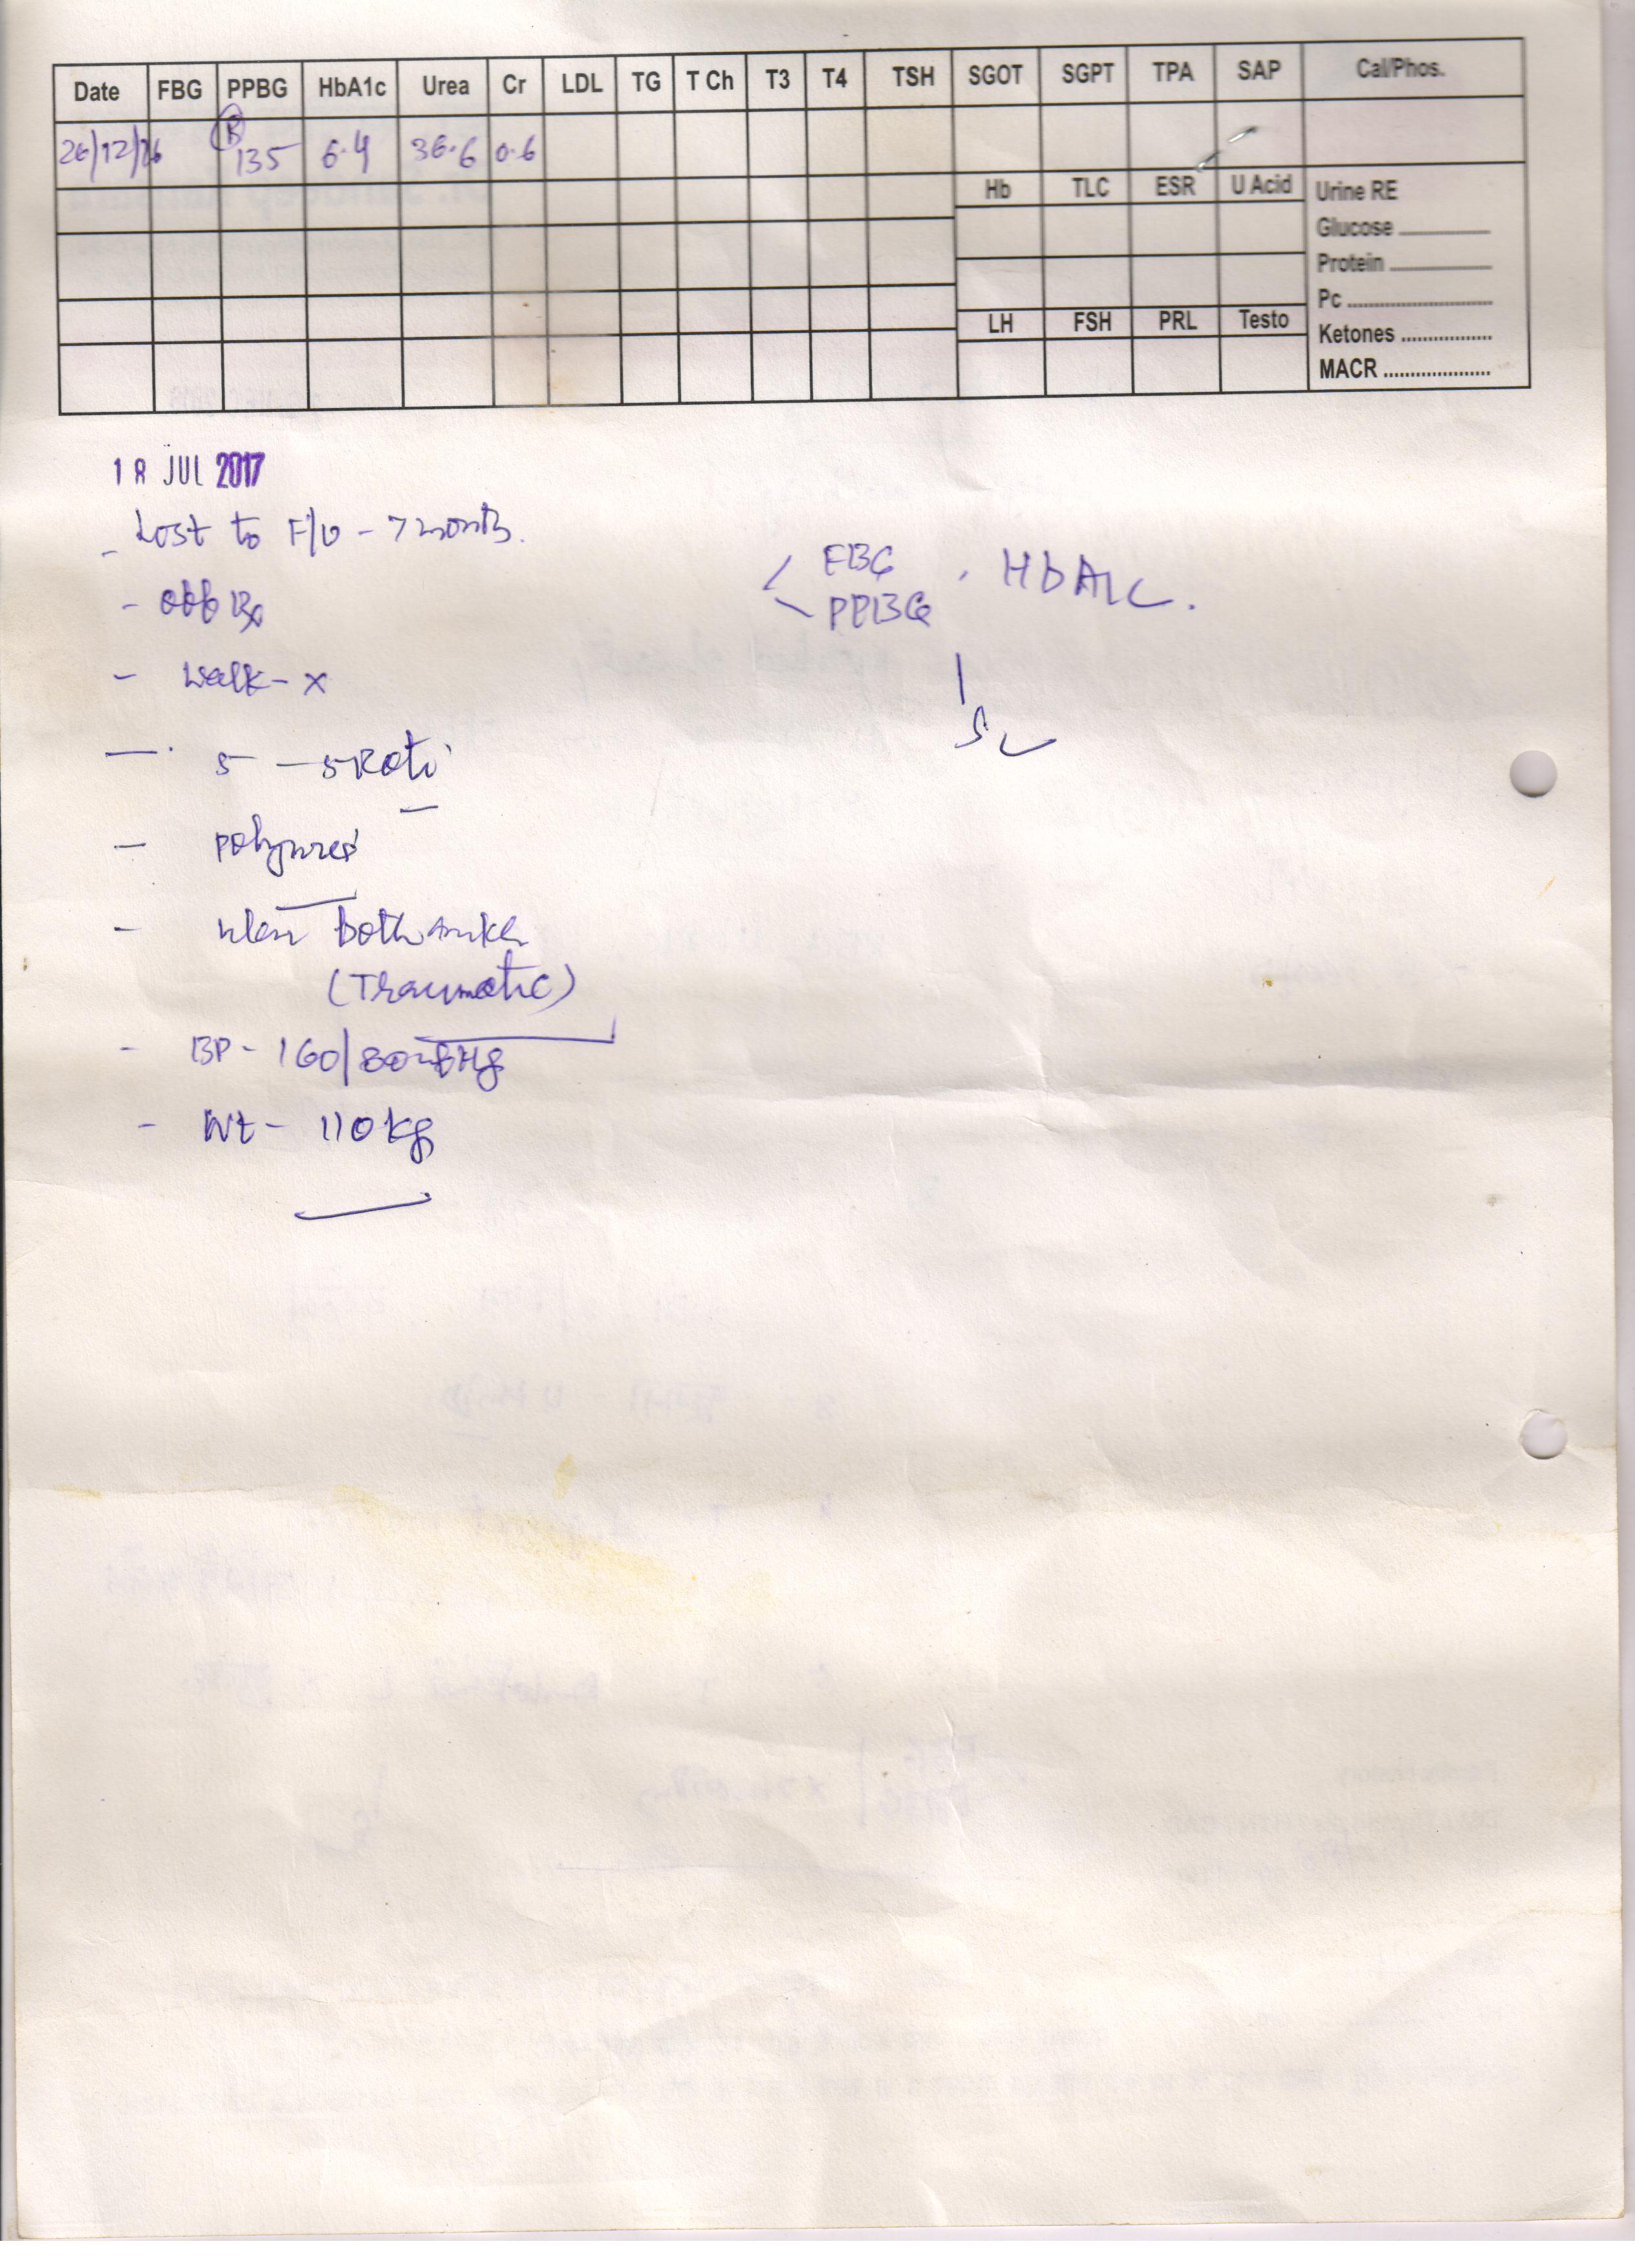 Date FBG PPBG HbA1c Urea Cr LDL TG T Ch T3 T4 TSH SGOT SGPT TPA SAP Cal/Phos.
26/12/16 R 135 6.4 36.6 0.6
Hb TLC ESR U Acid Urine RE
Glucose
Protein
Pc
LH FSH PRL Testo
Ketones
MACR
18 JUL 2017
- Lost to F/U - 7 months.
- off Rx
- walk - x
- 5 - 5 Roti
- polyurea
- ulcer both ankle
(Traumatic)
- BP - 160/80 mmHg
- Wt - 110 kg
FBG
PPBG
HbA1c.